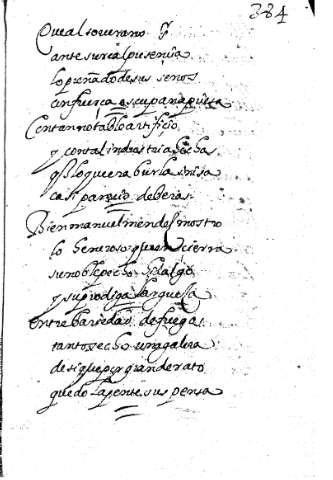 384
Que al soverano
ante su real presencia
lo preñado de sus senos
en fuerça escupan a puesta
Con tan notablo artificio
y con tal industria hechas
q̃ lo que era burla i risa
casi pareçio de beras
Bien manuel mendes mostro
lo Generoso que en ci erra
su noble pecho hidalgo
y su prodiga largueſsa
entre bariedad de fuegos
tantos echo una galera
de si que por grande rato
quedo la gente suspensa